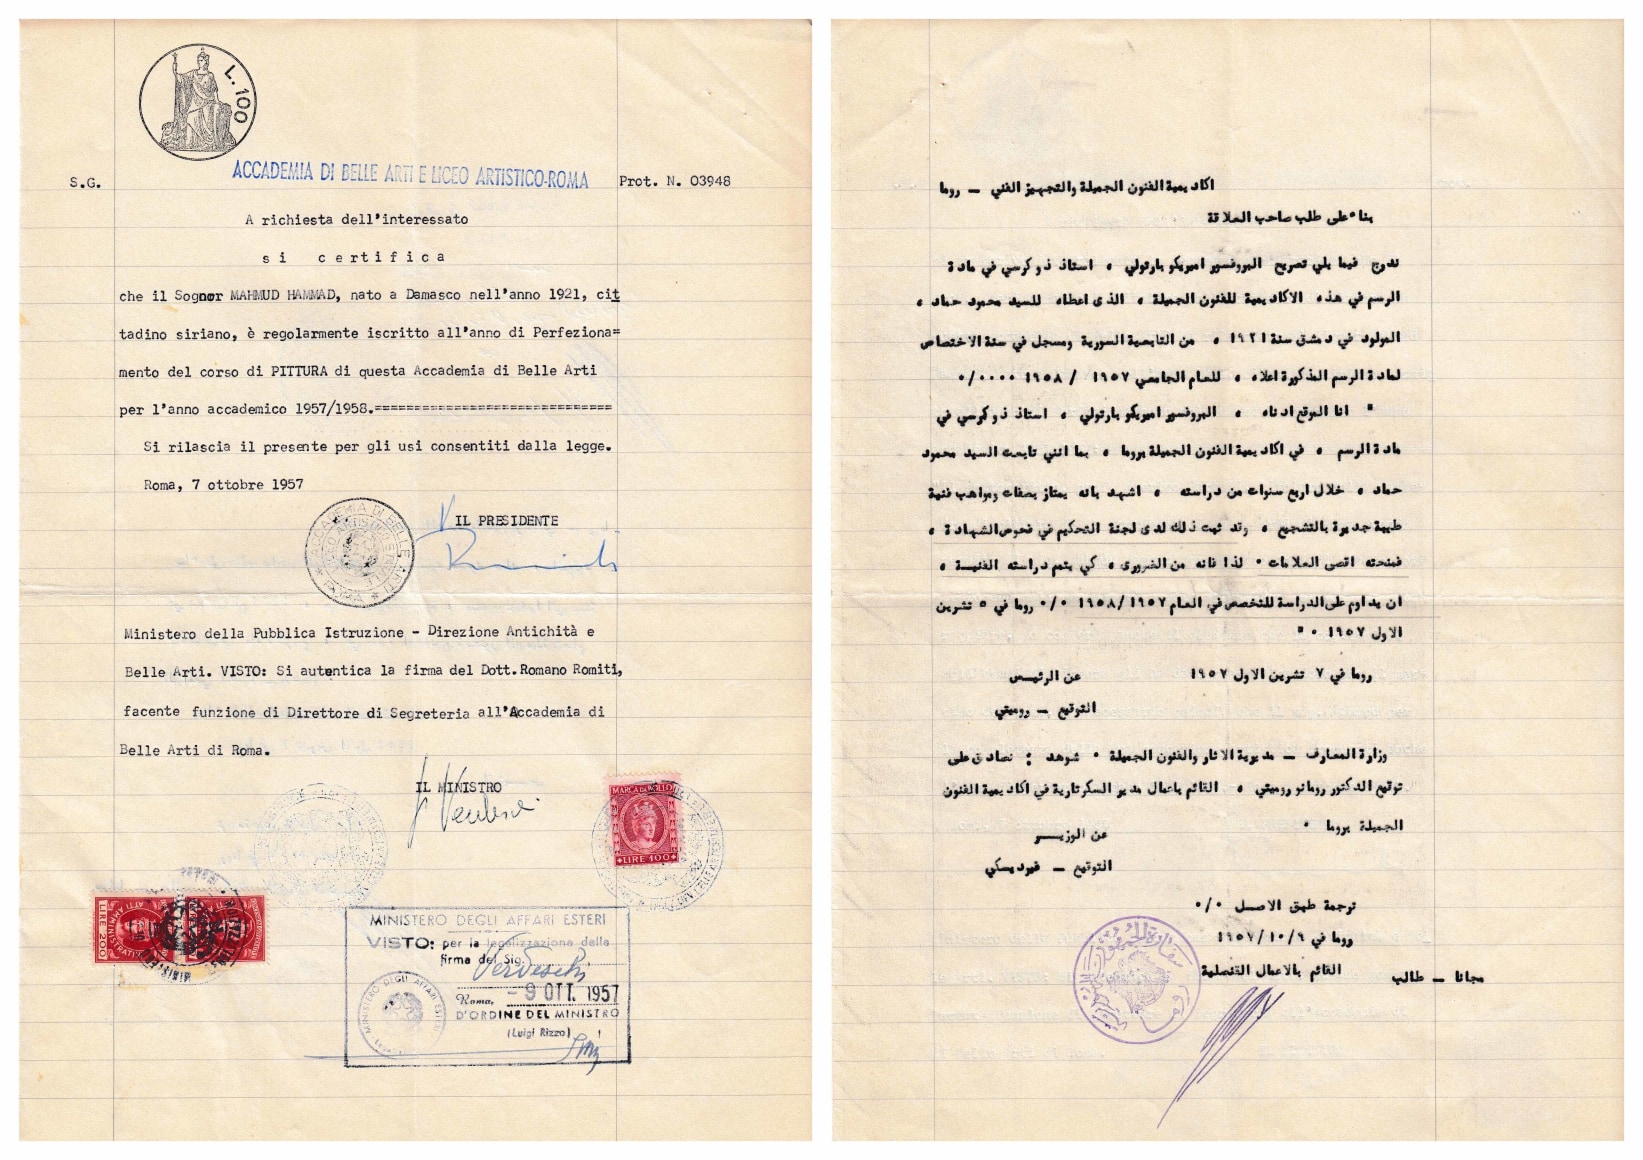 L. 100
ACCADEMIA DI BELLE ARTI E LICEO ARTISTICO-ROMA
S.G.
Prot. N. 03948
A richiesta dell'interessato
si certifica
che il Sognor MAHMUD HAMMAD, nato a Damasco nell'anno 1921, cit
tadino siriano, è regolarmente iscritto all'anno di Perfeziona=
mento del corso di PITTURA di questa Accademia di Belle Arti
per l'anno accademico 1957/1958.==============================
Si rilascia il presente per gli usi consentiti dalla legge.
Roma, 7 ottobre 1957
IL PRESIDENTE
ACCADEMIA DI BELLE ARTI
ROMA
Ministero della Pubblica Istruzione - Direzione Antichità e
Belle Arti. VISTO: Si autentica la firma del Dott. Romano Romiti,
facente funzione di Direttore di Segreteria all'Accademia di
Belle Arti di Roma.
IL MINISTRO
MARCA DA BOLLO
LIRE 100
LIRE 200
MINISTERO DEGLI AFFARI ESTERI
VISTO: per la legalizzazione della
firma del Sig. Verdeschi
Roma, - 9 OTT. 1957
D'ORDINE DEL MINISTRO
(Luigi Rizzo)
MINISTERO DEGLI AFFARI ESTERI
اكاديمية الفنون الجميلة والتجهيز الفني – روما
بناء على طلب صاحب العلاقة
ندرج فيما يلي تصريح البروفسور اميريكو بارتولي ، استاذ ذو كرسي في مادة
الرسم في هذه الاكاديمية للفنون الجميلة ، الذى اعطاه للسيد محمود حماد ،
المولود في دمشق سنة ١٩٢١ ، من التابعية السورية ومسجل في سنة الاختصاص
لمادة الرسم المذكورة اعلاه ، للعام الجامعي ١٩٥٧ / ١٩٥٨ ٠٠٠٠/٠
" انا الموقع ادناه ، البروفسور اميريكو بارتولي ، استاذ ذو كرسي في
مادة الرسم ، في اكاديمية الفنون الجميلة بروما ، بما انني تابعت السيد محمود
حماد ، خلال اربع سنوات من دراسته ، اشهد بانه يمتاز بصفات ومواهب فنية
طيبة جديرة بالتشجيع ، وقد ثبت ذلك لدى لجنة التحكيم في فحوص الشهادة ،
فمنحته اقصى العلامات ٠ لذا فانه من الضرورى ، كي يتمم دراسته الفنية ،
ان يداوم على الدراسة للتخصص في العام ١٩٥٧/١٩٥٨ ٠/٠ روما في ٥ تشرين
الاول ١٩٥٧ ٠ "
روما في ٧ تشرين الاول ١٩٥٧
عن الرئيس
التوقيع – روميتي
وزارة المعارف – مديرية الاثار والفنون الجميلة ٠ شوهد : نصادق على
توقيع الدكتور رومانو روميتي ، القائم باعمال مدير السكرتارية في اكاديمية الفنون
الجميلة بروما ٠
عن الوزير
التوقيع – فيرديسكي
ترجمة طبق الاصل ٠/٠
روما في ١٩٥٧/١٠/٩
القائم بالاعمال القنصلية
مجانا – طالب